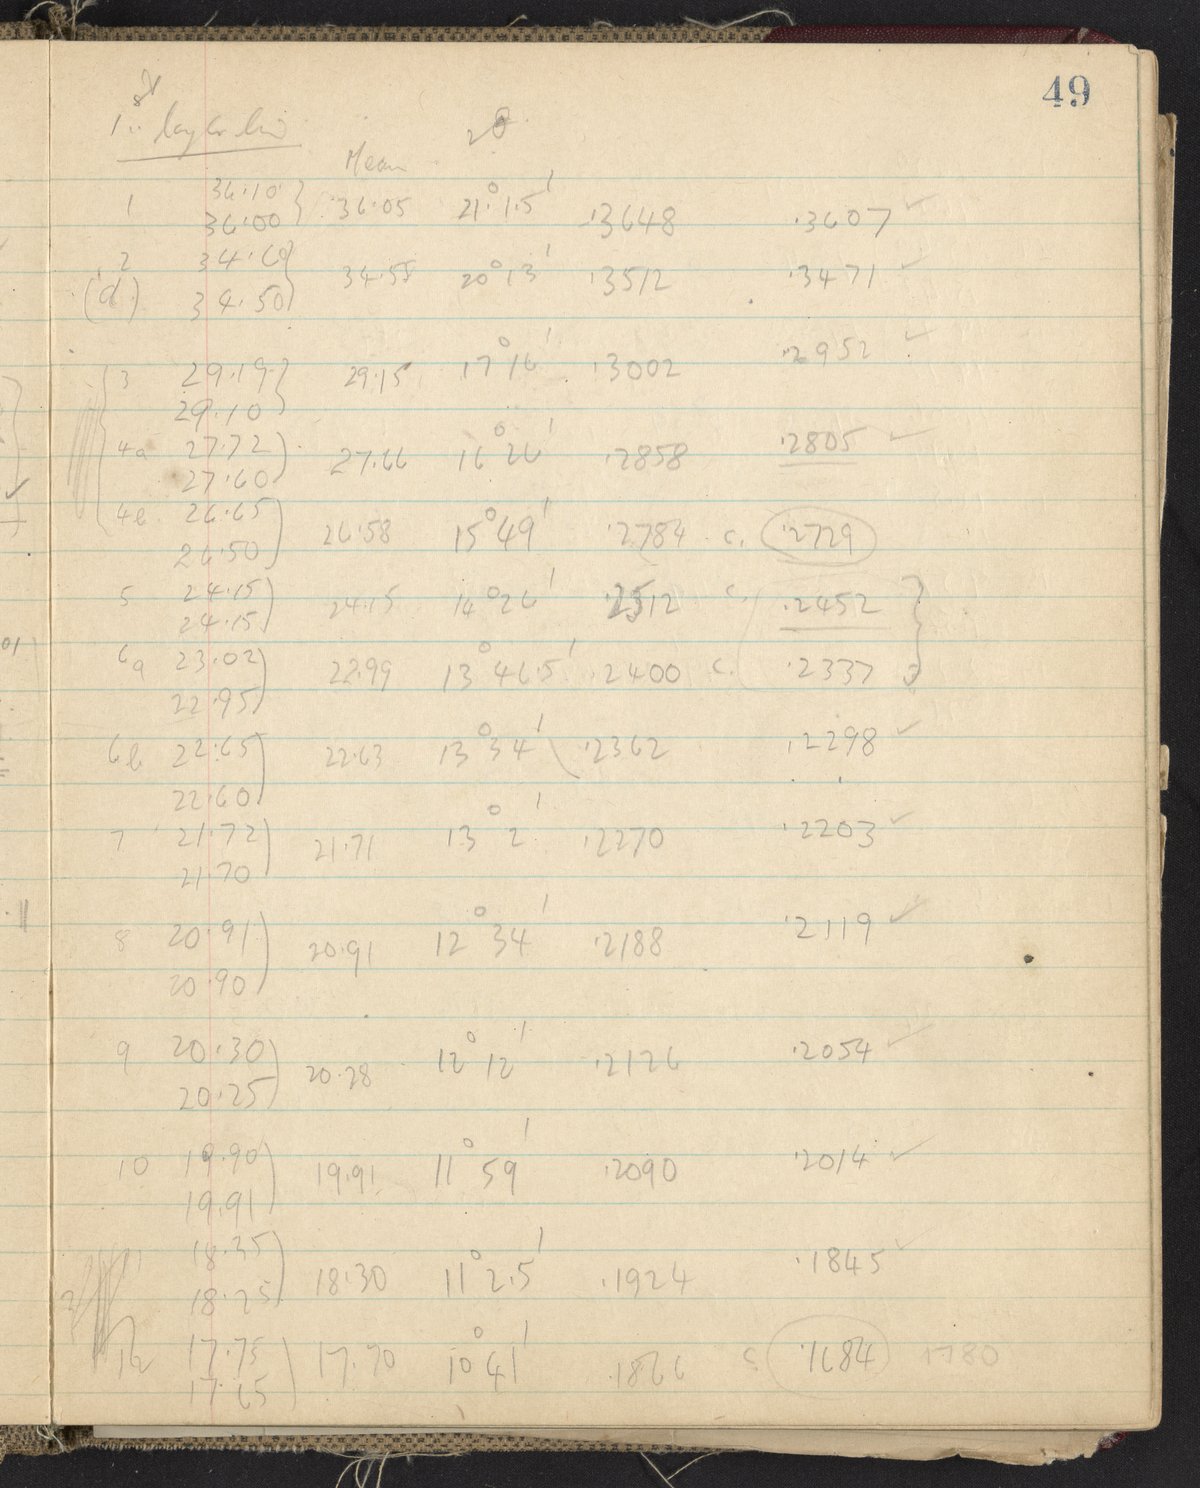 49
1st layer line
Mean 2θ
1 36.10 } 36.05 21° 1.5' .3648 .3607 ✓
36.00
2 34.60 } 34.55 20° 13' .3512 .3471 ✓
(d) 34.50
3 29.19 } 29.15 17° 16' .3002 .2952 ✓
29.10
4a 27.72 } 27.66 16° 26' .2858 .2805 ✓
27.60
4b 26.65 } 26.58 15° 49' .2784 c. .2729
26.50
5 24.15 } 24.15 14° 26' .2512 c. .2452
24.15
6a 23.02 } 22.99 13° 46.5' .2400 c. .2337
22.95
6b 22.65 } 22.63 13° 34' .2362 .2298 ✓
22.60
7 21.72 } 21.71 13° 2' .2270 .2203 ✓
21.70
8 20.91 } 20.91 12° 34' .2188 .2119 ✓
20.90
9 20.30 } 20.28 12° 12' .2126 .2054 ✓
20.25
10 19.90 } 19.91 11° 59' .2090 .2014 ✓
19.91
18.35 } 18.30 11° 2.5' .1924 .1845 ✓
18.25
12 17.75 } 17.70 10° 41' .1866 c. .1684 1780
17.65